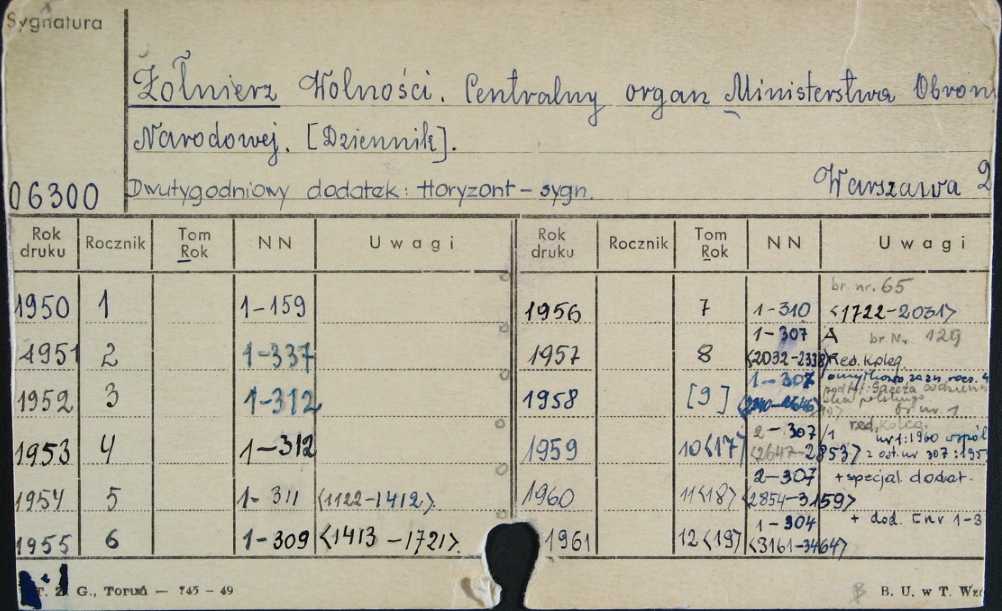 Sygnatura
Żołnierz Wolności. Centralny organ Ministerstwa Obron
Narodowej. [Dziennik].
06300 Dwutygodniowy dodatek: Horyzont - sygn. Warszawa 2
Rok druku Rocznik Tom Rok NN Uwagi Rok druku Rocznik Tom Rok NN Uwagi
1950 1 1-159
1951 2 1-337
1952 3 1-312
1953 4 1-312
1954 5 1-311 <1122-1412>.
1955 6 1-309 <1413-1721>.
br. nr. 65
1956 7 1-310 <1722-2031>
1-307 A br Nr. 129
1957 8 <2032-2338> Red. koleg.
1-307 omyłkowo
1958 [9]
br nr. 1
2-307 red. koleg.
nr 1:1960 wspól
1959 10<17> <2647-2853> z ost. nr 307:195
2-307 + specjal. dodat.
1960 11<18> <2854-3159>
1-304 + dod. nr 1-3
1961 12<19> <3161-3464>
T. Z. G., Toruń — 745 - 49 B. U. w T. Wzó